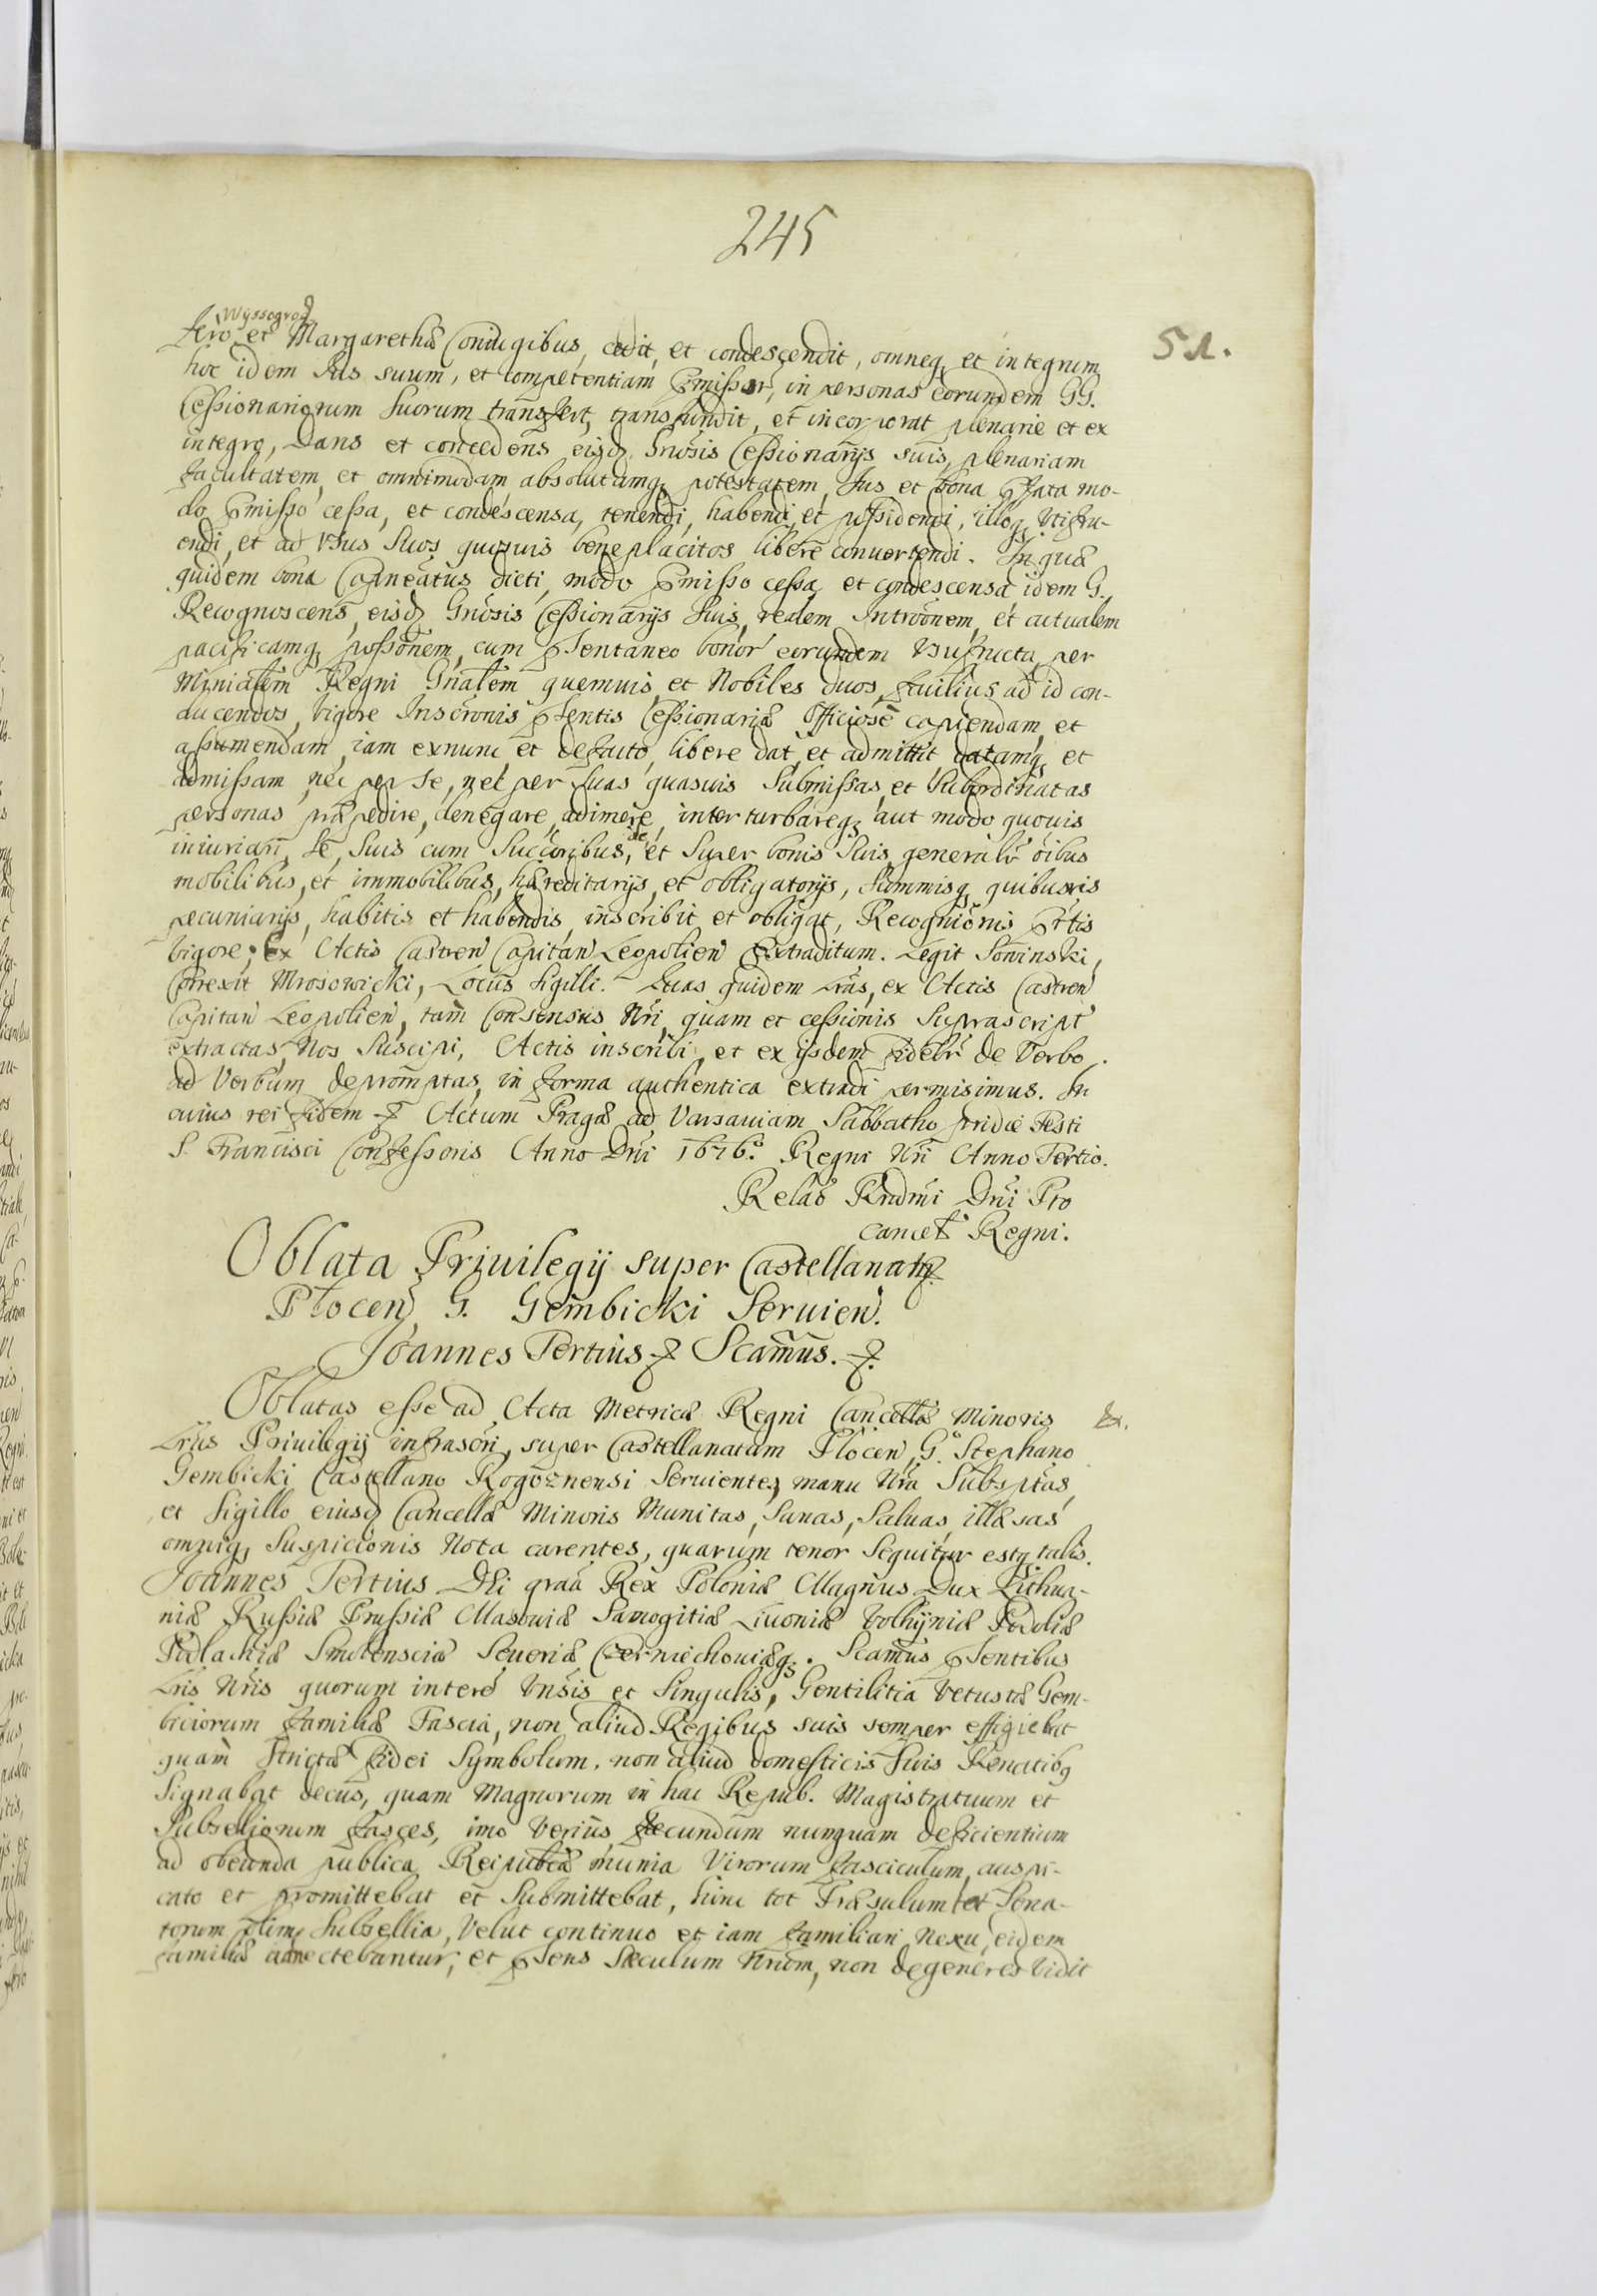 245
51.
Wyssogrod
fero et Margarethæ Coniugibus, cedit, et condescendit, omneq, et integrum
hoc idem Ius suum, et competentiam præmissor, in personas eorundem GG.
Cessionariorum Suorum transfert, transfundit, et incorporat plenarie et ex
integro, Dans et concedens eisd Gnosis Cessionarijs suis, plenariam
facultatem, et omnimodam absolutamq potestatem, Ius et bona præfata mo-
do præmisso cessa, et condescensa, tenendi, habendi, et possidendi, illoq Vtifru-
endi, et ad Vsus Suos quosuis beneplacitos libere conuertendi. In quæ
quidem bona Capneatus dicti, modo præmisso cessa, et condescensa idem G.
Recognoscens, eisd Gnosis Cessionarijs Suis, realem Introonem, et actualem
pacificamq possonem, cum præsentaneo bonor eorundem Vsufructu per
Mnialem Regni Gnalem quemuis, et Nobiles duos, facilius ad id con-
ducendos, Vigore Inscronis præsentis Cessionariæ Officiose capiendam, et
assumendam, iam exnunc et defacto, libere dat, et admittit, datamq et
admissam, nec per se, nec per Suas quasuis Submissas, et Subordinatas
personas præpedire, denegare, adimere, interturbareq aut modo quouis
iniuriari, Se, Suis cum Succoribus, de et Super bonis Suis generalr oibus
mobilibus, et immobilibus, hæreditarijs, et obligatorijs, Summisq quibusuis
pecuniarijs, habitis et habendis, inscribit et obligat, Recognionis præntis
Vigore, Ex Actis Castren Capitan Leopolien Extraditum. Legit Soninski,
Correxit Mrosowicki, Locus Sigilli. Quas quidem Lras, ex Actis Castren
Capitan Leopolien, tam Consensus Nri, quam et cessionis Suprascript
extractas, Nos Suscipi, Actis inscribi, et ex ijsdem fidelr de Verbo
ad Verbum depromptas, in forma authentica extradi permisimus. In
cuius rei fidem Actum Pragæ ad Varsauiam Sabbatho pridie Festi
S. Francisci Confessoris Anno Dni 1676. Regni Nri Anno Tertio.
Relao Rndmi Dni Pro
cancel Regni.
Oblata Priuilegij super Castellanat
Plocen, G. Gembicki Seruien.
Joannes Tertius Scamus.
Oblatas esse ad Acta Metricæ Regni Cancellæ Minoris
Lras Priuilegij infrascri, super Castellanatum Plocen, G. Stephano
Gembicki Castellano Rogoznensi Seruientes, manu Nra Subsptas,
et Sigillo eiusd Cancellæ Minoris Munitas, Sanas, Saluas, illæsas
omniq Suspicionis Nota carentes, quarum tenor Sequitur estq talis.
Joannes Tertius Dei graa Rex Poloniæ Magnus Dux Lithua-
niæ Russiæ Prussiæ Masouiæ Samogitiæ Liuoniæ Volhyniæ Podoliæ
Podlachiæ Smolensciæ Seueriæ Czerniechouiæq. Scamus præsentibus
Lris Nris quorum interē Vnsis et Singulis, Gentilitia Vetustæ Gem-
biciorum familiæ Fascia, non aliud Regibus suis semper effigiebat
quam Strictæ fidei Symbolum, non aliud domesticis Suis Penatibq
Signabat decus, quam Magnorum in hac Repub. Magistratuum et
Subselliorum fasces, imo Verius fæcundum nunquam deficientium
ad obeunda publica Reipublcæ munia Virorum fasciculum, auspi-
cato et promittebat et Submittebat, hinc tot Præsulum et Sena-
torum olim Subsellia, Velut continuo et iam familiari Nexu, eidem
familiæ annectebantur, et præsens Sæculum Nrum, non degeneres Vidit